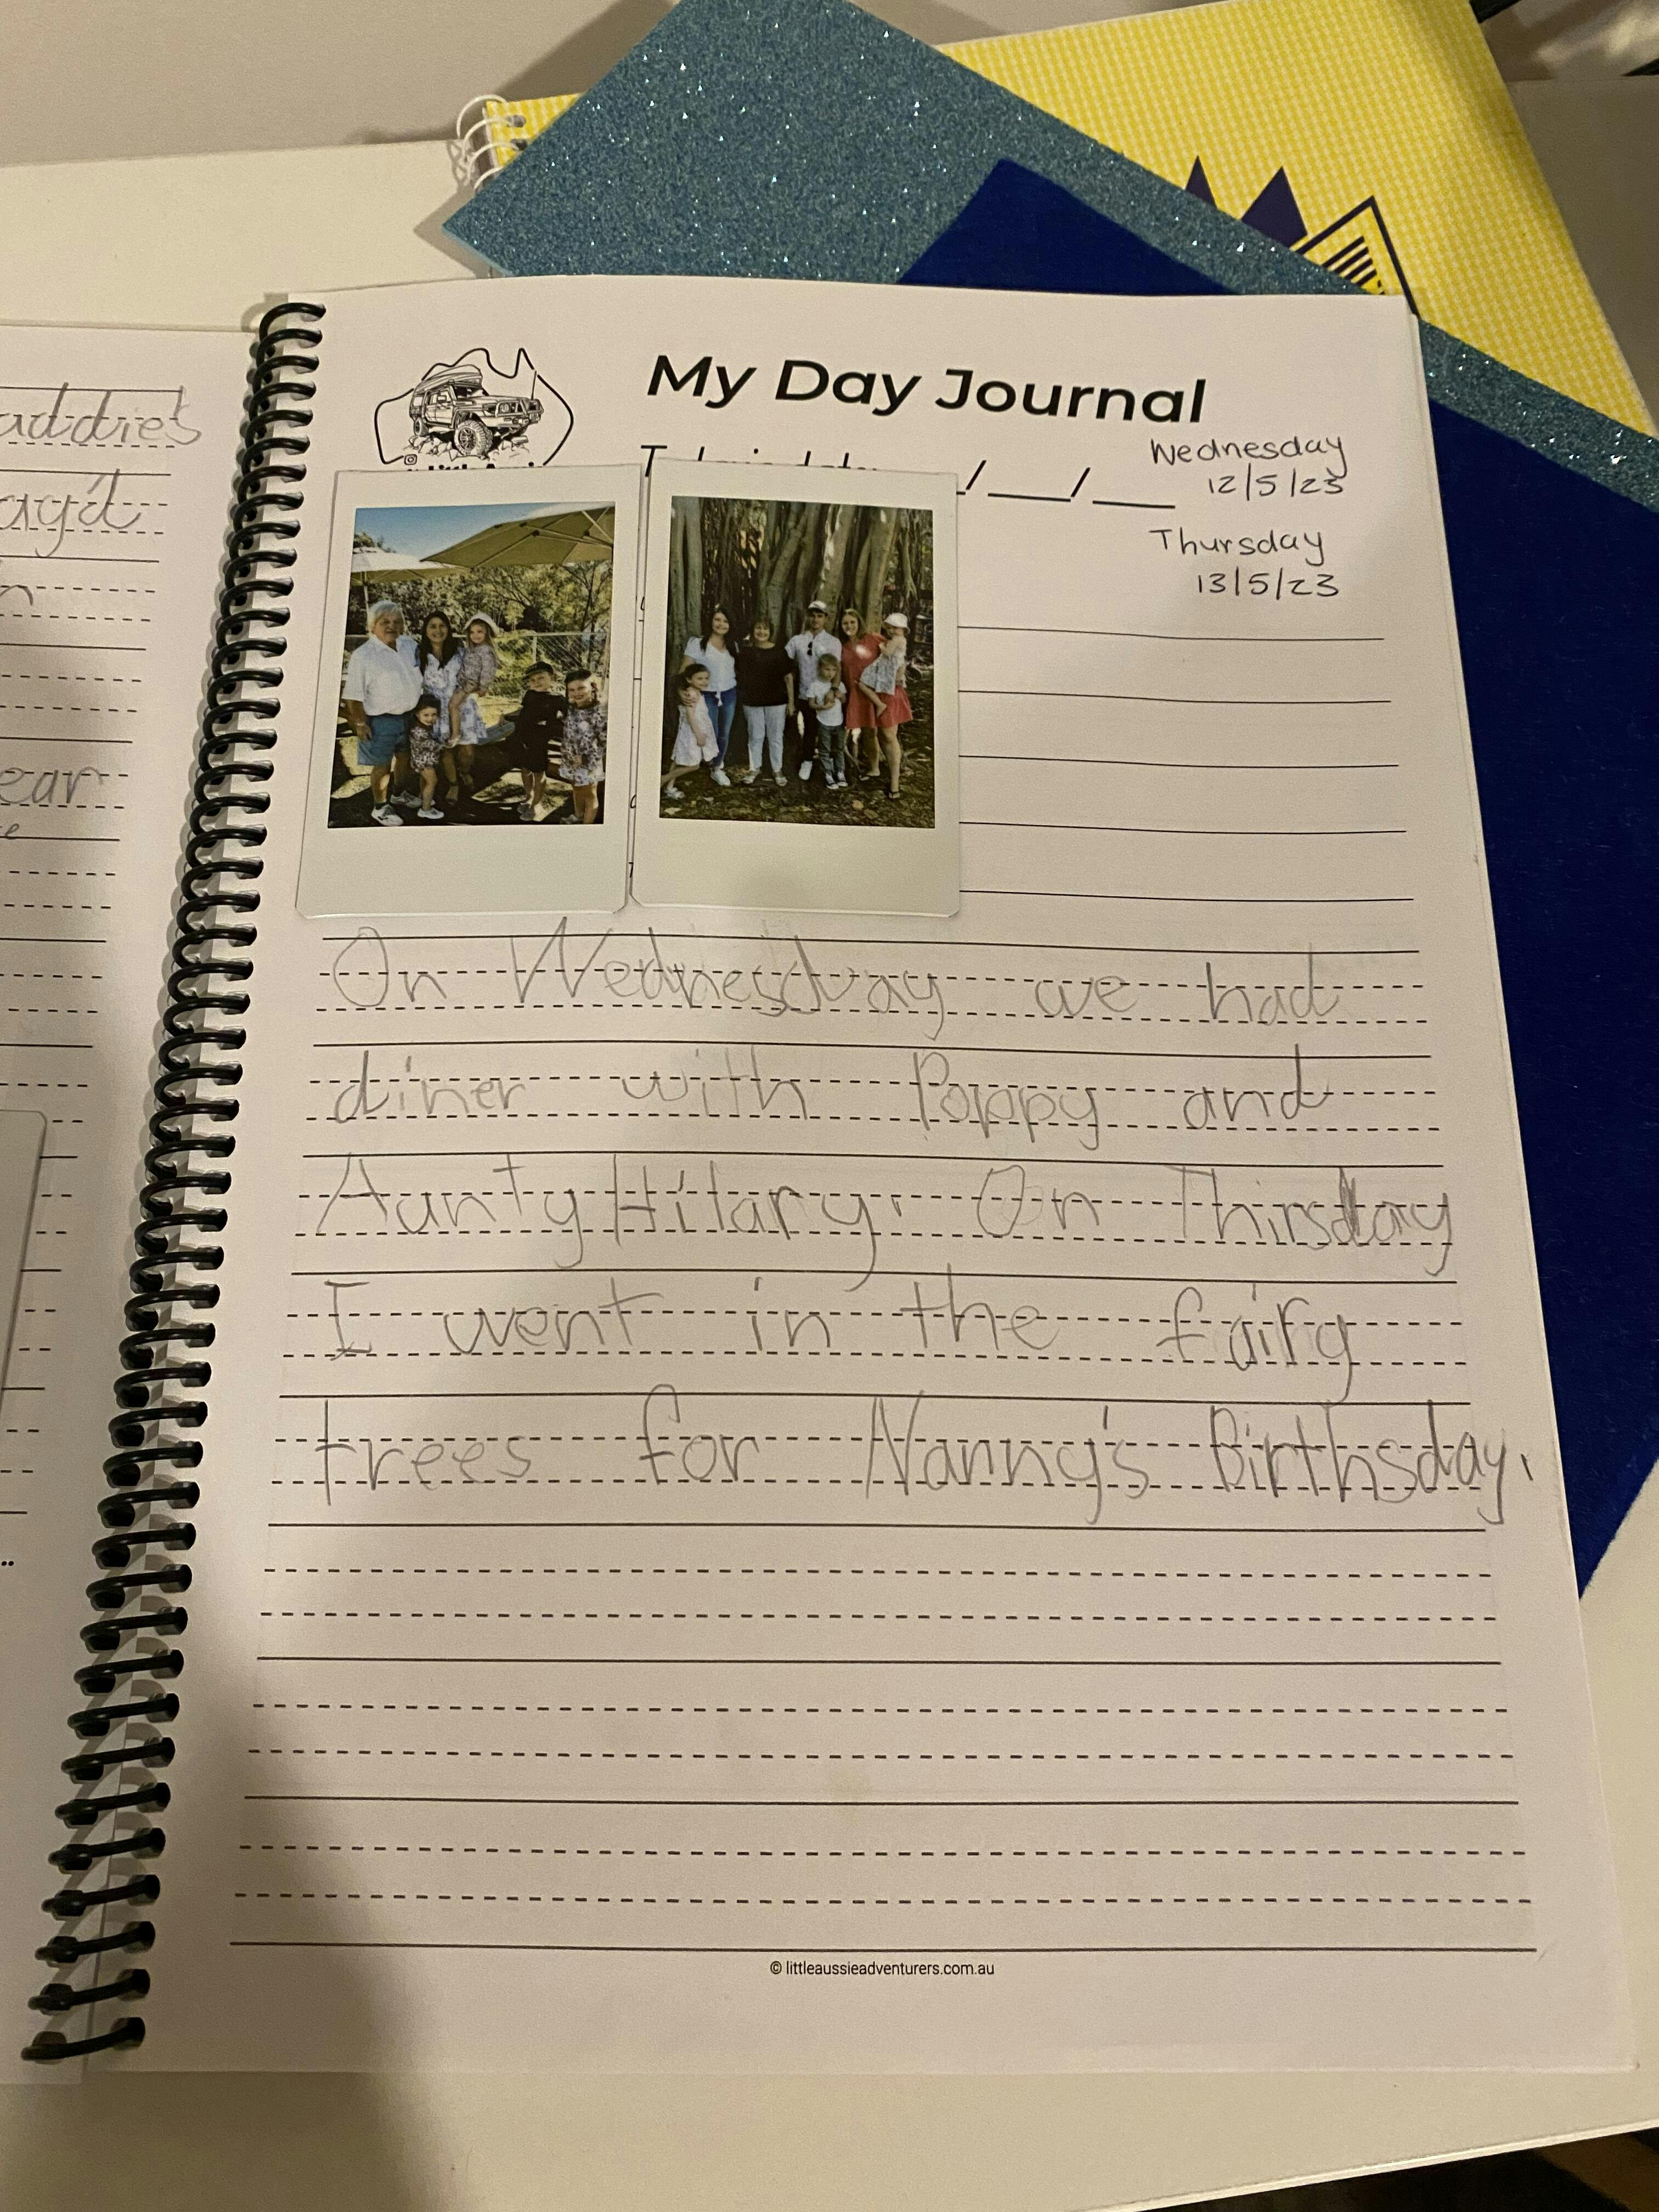 addies
ayd
ear
My Day Journal
Wednesday
12/5/23
Thursday
13/5/23
On Wednesday we had
diner with Poppy and
Aunty Hilary. On Thirsday
I went in the fairy
trees for Nanny's Birthsday.
© littleaussieadventurers.com.au